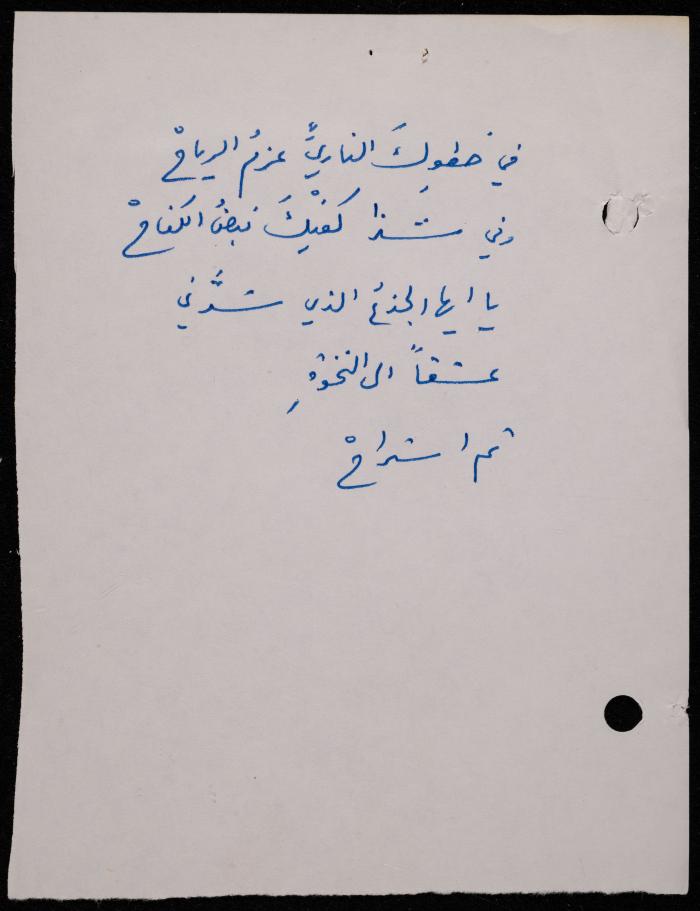 في خطوِكَ الناريِّ عزمُ الرياحْ
وفي شذا كفيْكَ نبضُ الكفاحْ
يا ايها الجذعُ الذي شدَّني
عشقاً الى النخوةِ
ثم استراحْ